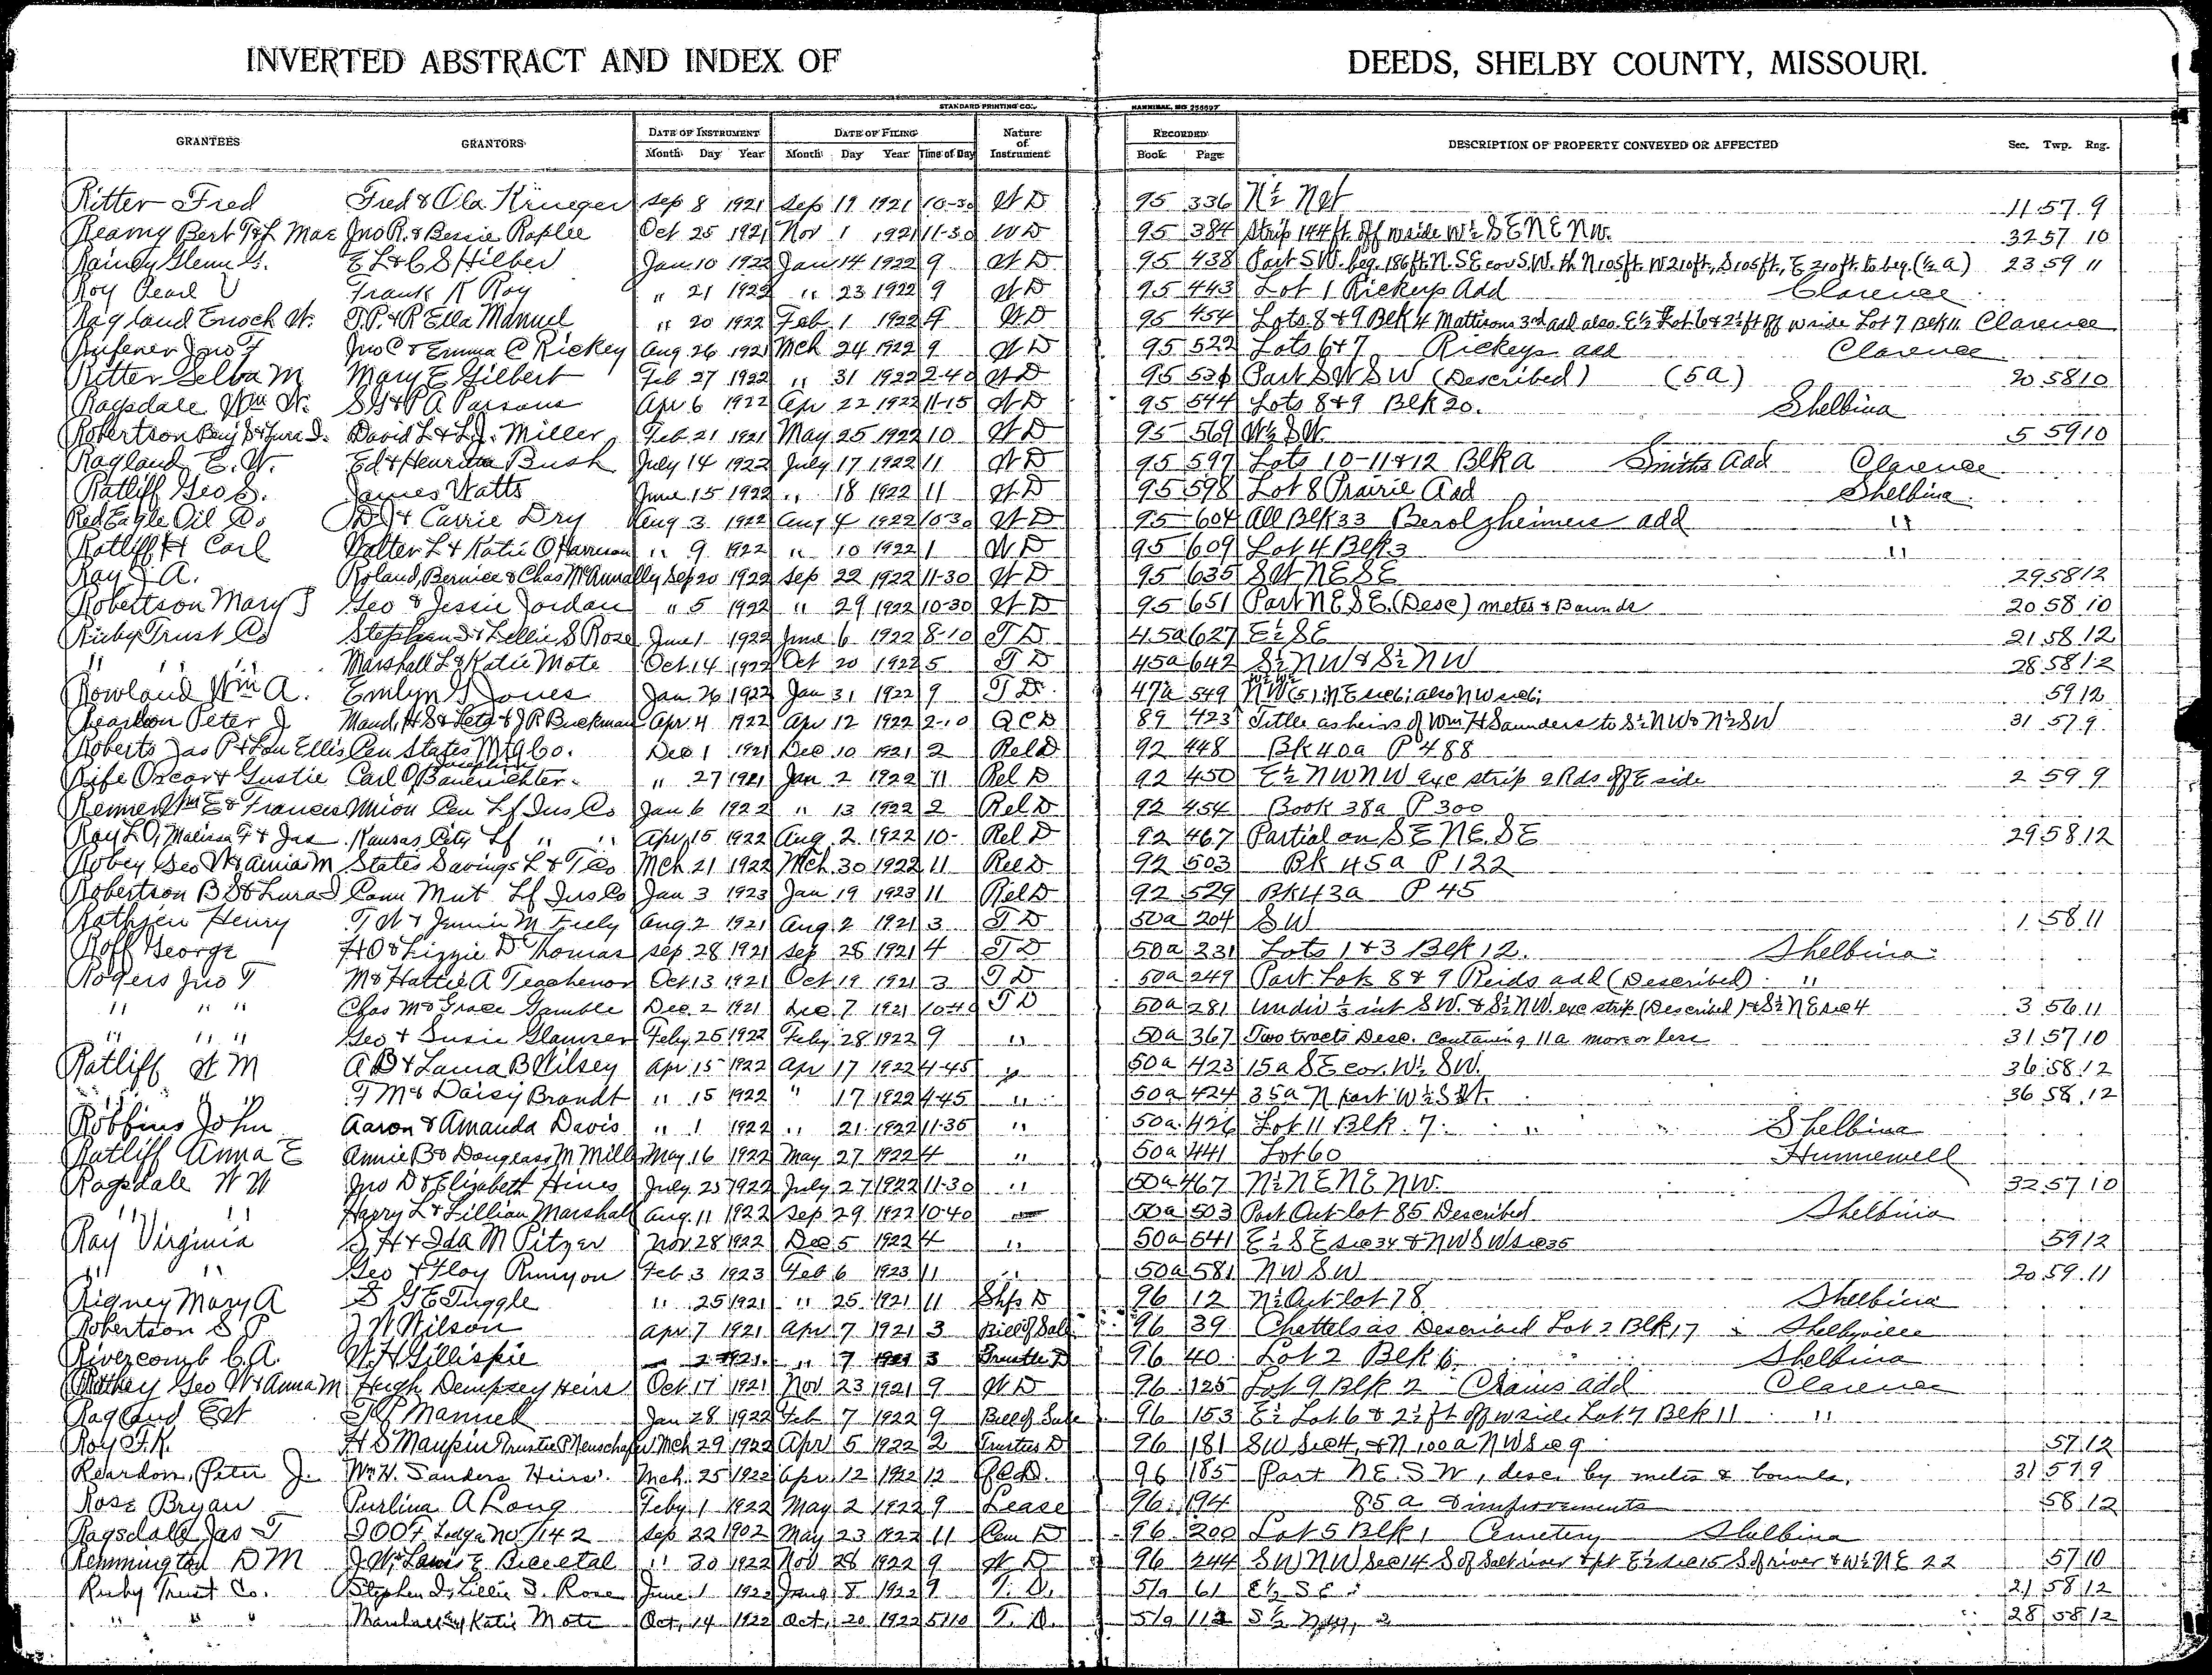 INVERTED ABSTRACT AND INDEX OF DEEDS, SHELBY COUNTY, MISSOURI.
STANDARD PRINTING CO., HANNIBAL, MO
GRANTEES GRANTORS DATE OF INSTRUMENT DATE OF FILING Nature of Instrument RECORDED DESCRIPTION OF PROPERTY CONVEYED OR AFFECTED Sec. Twp. Rng.
Month Day Year Month Day Year Time of Day Book Page
Ritter Fred Fred & Ola Krueger Sep 8 1921 Sep 19 1921 10-30 W D 95 336 N½ 11 57 9
Reamy Bert T & L Mae Jno R. & Bessie Raplee Oct 25 1921 Nov 1 1921 11-30 W D 95 384 Strip 144 ft. off W side W½ S E N E N W. 32 57 10
Rainey Glenn G. E L & C S Hilber Jan 10 1922 Jan 14 1922 9 W D 95 438 Part S W. beg. 186 ft. N. S E cor S. W. th N 105 ft. W 210 ft., S 105 ft., E 210 ft. to beg. (½ a) 23 59 11
Roy Pearl V Frank K Roy " 21 1922 " 23 1922 9 W D 95 443 Lot 1 Rickeys Add Clarence
Ragland Enoch W. T. P. & R Ella Manuel " 20 1922 Feb 1 1922 9 W D 95 454 Lots 8 & 9 Blk 4 Mattisons 3rd add also E½ Lot 6 & 2½ ft off W side Lot 7 Blk 11 Clarence
Jno F Jno C & Emma C Rickey Aug 26 1921 Mch 24 1922 9 W D 95 522 Lots 6 & 7 Rickeys add Clarence
Ritter Selba M Mary E Gilbert Feb 27 1922 " 31 1922 2-40 W D 95 Part S W S W (Described) (5 a) 20 58 10
Ragsdale Wm W. S G & P A Parsons Apr 6 1922 Apr 22 1922 11-15 W D 95 544 Lots 8 & 9 Blk 20. Shelbina
Robertson Benj S & Lura D. David L & L J. Miller Feb 21 1921 May 25 1922 10 W D 95 569 W½ S W. 5 59 10
Ragland E. W. Ed & Henrietta Bush July 14 1922 July 17 1922 11 W D 95 597 Lots 10-11 & 12 Blk A Smiths Add Clarence
Ratliff Geo S. James Watts June 15 1922 " 18 1922 11 W D 95 598 Lot 8 Prairie Add Shelbina
Red Eagle Oil Co D J & Carrie Dry Aug 3 1922 Aug 4 1922 10-30 W D 95 604 All Blk 33 Berolzheimers add "
Ratliff H Carl Walter L & Katie O Harrison " 9 1922 " 10 1922 1 W D 95 609 Lot 4 Blk 3 "
Ray J A. Roland, Bernice & Chas McAnnally Sep 20 1922 Sep 22 1922 11-30 W D 95 635 S W N E S E 29 58 12
Robertson Mary J Geo & Jessie Jordan " 5 1922 " 29 1922 10-30 W D 95 651 Part N E S E. (Desc) metes & Bounds 20 58 10
Ruby Trust Co Stephen D & Lellie S Rose June 1 1922 June 6 1922 8-10 T D 45a 627 E½ S E 21 58 12
" " " Marshall L & Katie Mote Oct 14 1922 Oct 20 1922 5 T D 45a 642 S½ N W & S½ N W 28 58 12
Rowland Wm A. Emlyn S Jones Jan 26 1922 Jan 31 1922 9 T D. 47a 549 N W (5); N E sec 6; also N W sec 6; 59 12
Reardon Peter J Maud, H S & Leta & J R Buckman Apr 4 1922 Apr 12 1922 2-10 Q C D 89 423 Tittle as heirs of Wm H Saunders to S½ N W & N½ S W 31 57 9
Roberts Jas P & Lou Ellis Pen States Mtg Co. Dec 1 1921 Dec 10 1921 2 Rel D 92 448 Bk 40a P 488
Rife Oscar & Gustie Carl O Josephine Bauerichter " 27 1921 Jan 2 1922 11 Rel D 92 450 E½ N W N W exc strip 2 Rds off E side 2 59 9
Renner Wm E & Frances Union Cen Lf Ins Co Jan 6 1922 " 13 1922 2 Rel D 92 454 Book 38a P 300
Ray L O, Malissa F & Jas Kansas City Lf " " Apr 15 1922 Aug 2 1922 10- Rel D 92 467 Partial on S E N E. S E 29 58 12
Robey Geo W & Annia M States Savings L & T Co Mch 21 1922 Mch 30 1922 11 Rel D 92 503 Bk 45a P 122
Robertson B S & Lura D Conn Mut Lf Ins Co Jan 3 1923 Jan 19 1923 11 Rel D 92 529 Bk 43a P 45
Rathjen Henry T W & Jennie M Freely Aug 2 1921 Aug 2 1921 3 T D 50a 204 S W 1 58 11
Roff George H O & Lizzie D Thomas Sep 28 1921 Sep 28 1921 4 T D 50a 231 Lots 1 & 3 Blk 12. Shelbina
Rogers Jno T M & Hattie A Teachenor Oct 13 1921 Oct 19 1921 3 T D 50a 249 Part Lots 8 & 9 Reids add (Described) "
" " " Chas M & Grace Gamble Dec 2 1921 Dec 7 1921 10-40 T D 50a 281 Undiv ½ int S W. & S½ N W. exc strip (Described) & S½ N E sec 4 3 56 11
" " " Geo & Susie Glamser Feby 25 1922 Feby 28 1922 9 " 50a 367 Two tracts Desc. containing 11 a more or less 31 57 10
Ratliff W M A B & Laura B Wilsey Apr 15 1922 Apr 17 1922 4-45 " 50a 423 15 a S E cor. W½ S W. 36 58 12
" " " F M & Daisy Brandt " 15 1922 " 17 1922 4-45 " 50a 424 35 a N part W½ S W. 36 58 12
Robbins John Aaron & Amanda Davis " 1 1922 " 21 1922 11-35 " 50a 426 Lot 11 Blk 7. Shelbina
Ratliff Anna E Annie B & Douglass M Mill May 16 1922 May 27 1922 4 " 50a 441 Lot 60 Hunnewell
Ragsdale W W Jno D & Elizabeth Hines July 25 1922 July 27 1922 11-30 " 50a 467 N½ N E N E N W. 32 57 10
" " Harry L & Lillian Marshall Aug 11 1922 Sep 29 1922 10-40 50a 503 Part Out-lot 85 Described Shelbina
Ray Virginia S H & Ida M Pitzer Nov 28 1922 Dec 5 1922 4 " 50a 541 E½ S E sec 34 & N W S W sec 35 59 12
" " Geo & Floy Runyon Feb 3 1923 Feb 6 1923 11 " 50a 581 N W S W 20 59 11
Rigney Mary A S G E Tuggle " 25 1921 " 25 1921 11 Shfs D 96 12 N½ Out lot 78 Shelbina
Robertson S P J W Wilson Apr 7 1921 Apr 7 1921 3 Bill of Sale 96 39 Chattels as Described Lot 2 Blk 17 Shelbyville
Rivercomb C. A. W. H Gillispie 2 1921 " 7 1921 3 Trustee D 96 40 Lot 2 Blk 6 Shelbina
Geo W & Anna M Hugh Dempsey Heirs Oct 17 1921 Nov 23 1921 9 W D 96 125 Lot 9 Blk 2 Crains add Clarence
Ragland E W T P Manuel Jan 28 1922 Feb 7 1922 9 Bill of Sale 96 153 E½ Lot 6 & 2½ ft off W side Lot 7 Blk 11 "
Roy F. K. H S Maupin Trustee P Menschafer Mch 29 1922 Apr 5 1922 2 Trustees D 96 181 S W sec 4, & N 100 a N W sec 9 57 12
Reardon, Peter J. Wm H. Sanders Heirs. Mch. 25 1922 Apr 12 1922 12 Q C D. 96 185 Part N E. S W, desc. by metes & bounds. 31 57 9
Rose Bryan Purlina A Long Feby 1 1922 May 2 1922 9 Lease 96 194 85 a & improvements 58 12
Ragsdale Jas T I O O F Lodge No 142 Sep 22 1902 May 23 1922 11 Cem D 96 200 Lot 5 Blk 1 Cemetery Shelbina
Remmington D M " 30 1922 Nov 28 1922 9 W D 96 244 S W N W Sec 14 S of Salt river & pt E½ sec 15 S of river & W½ N E 22 57 10
Ruby Trust Co. Stephen D, Lillie S. Rose June 1 1922 June 8 1922 9 T. D. 51a 61 E½ S E 21 58 12
" " " Marshall & Katie Mote Oct. 14 1922 Oct. 20 1922 5 T. D. 51a 112 S½ 28 58 12